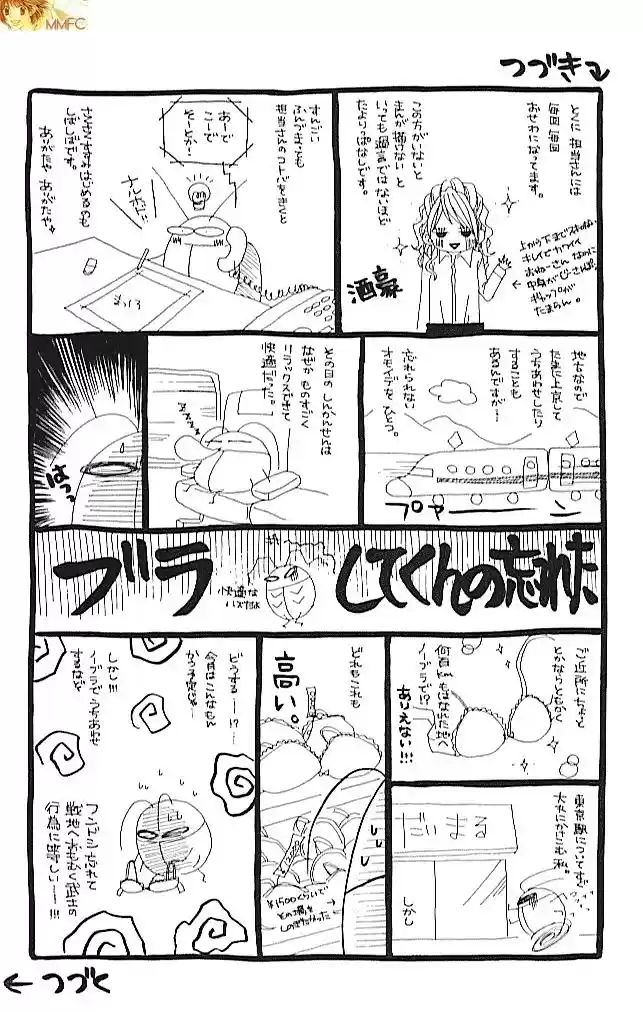 MMFC
つづき
とくに 担当さんには
毎回 毎回
おせわになってます。
この方がいないと
まんが描けない と
いっても過言ではないほど
たよりっぱなしです。
上から下までスキのない
キレイでカワイイ
おねーさんなのに
ギャップが
たまらん。
酒豪
すんごい
ふんづまっても
担当さんのコトバをきくと
あーで
こーで
そーとか・
ナルホドにい
まっしろ
さくさくすすみはじめるのも
しばしばです。
ありがたや ありがたや。
地方なので
たまに上京して
うちあわせしたり
することも
あるんですが…
忘れられない
オモイデを ひとつ。
プァーーン
その日の しんかんせんは
なぜか ものすごく
リラックスできて
快適だった。
ZZZZ
はっ
ブラ
してくんの忘れた
快適な
ハズだよ
ご近所にちょっと
とかならともかく
何百kmもはなれた地へ
ノーブラで!?
ありえない!!!
東京駅についてすぐ
大丸にかけこむ 私。
だいまる
しかし
どれもこれも
高い。
¥1500くらいで
その場を
しのぎたかった
どうする――!?
今月はこんなもん
かう予定じゃ――
しかし!!!
ノーブラでうちあわせ
するなど
フンドシ忘れて
戦地へおもむく武士の
行為に等しい――!!!
つづく